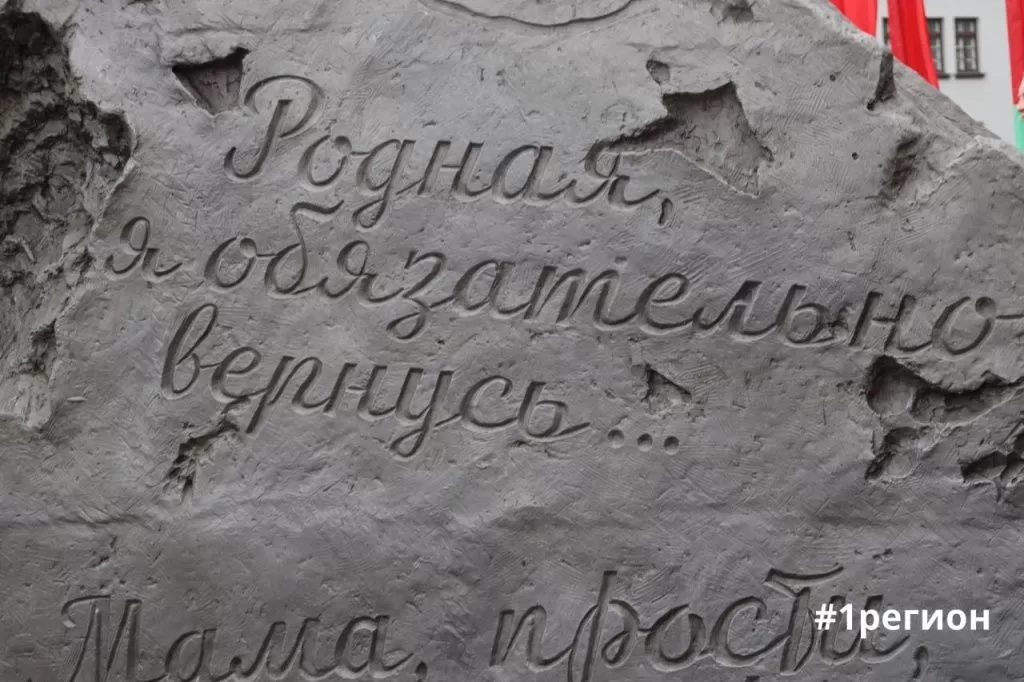 Родная,
я обязательно
вернусь...
Мама, прости,
#1регион